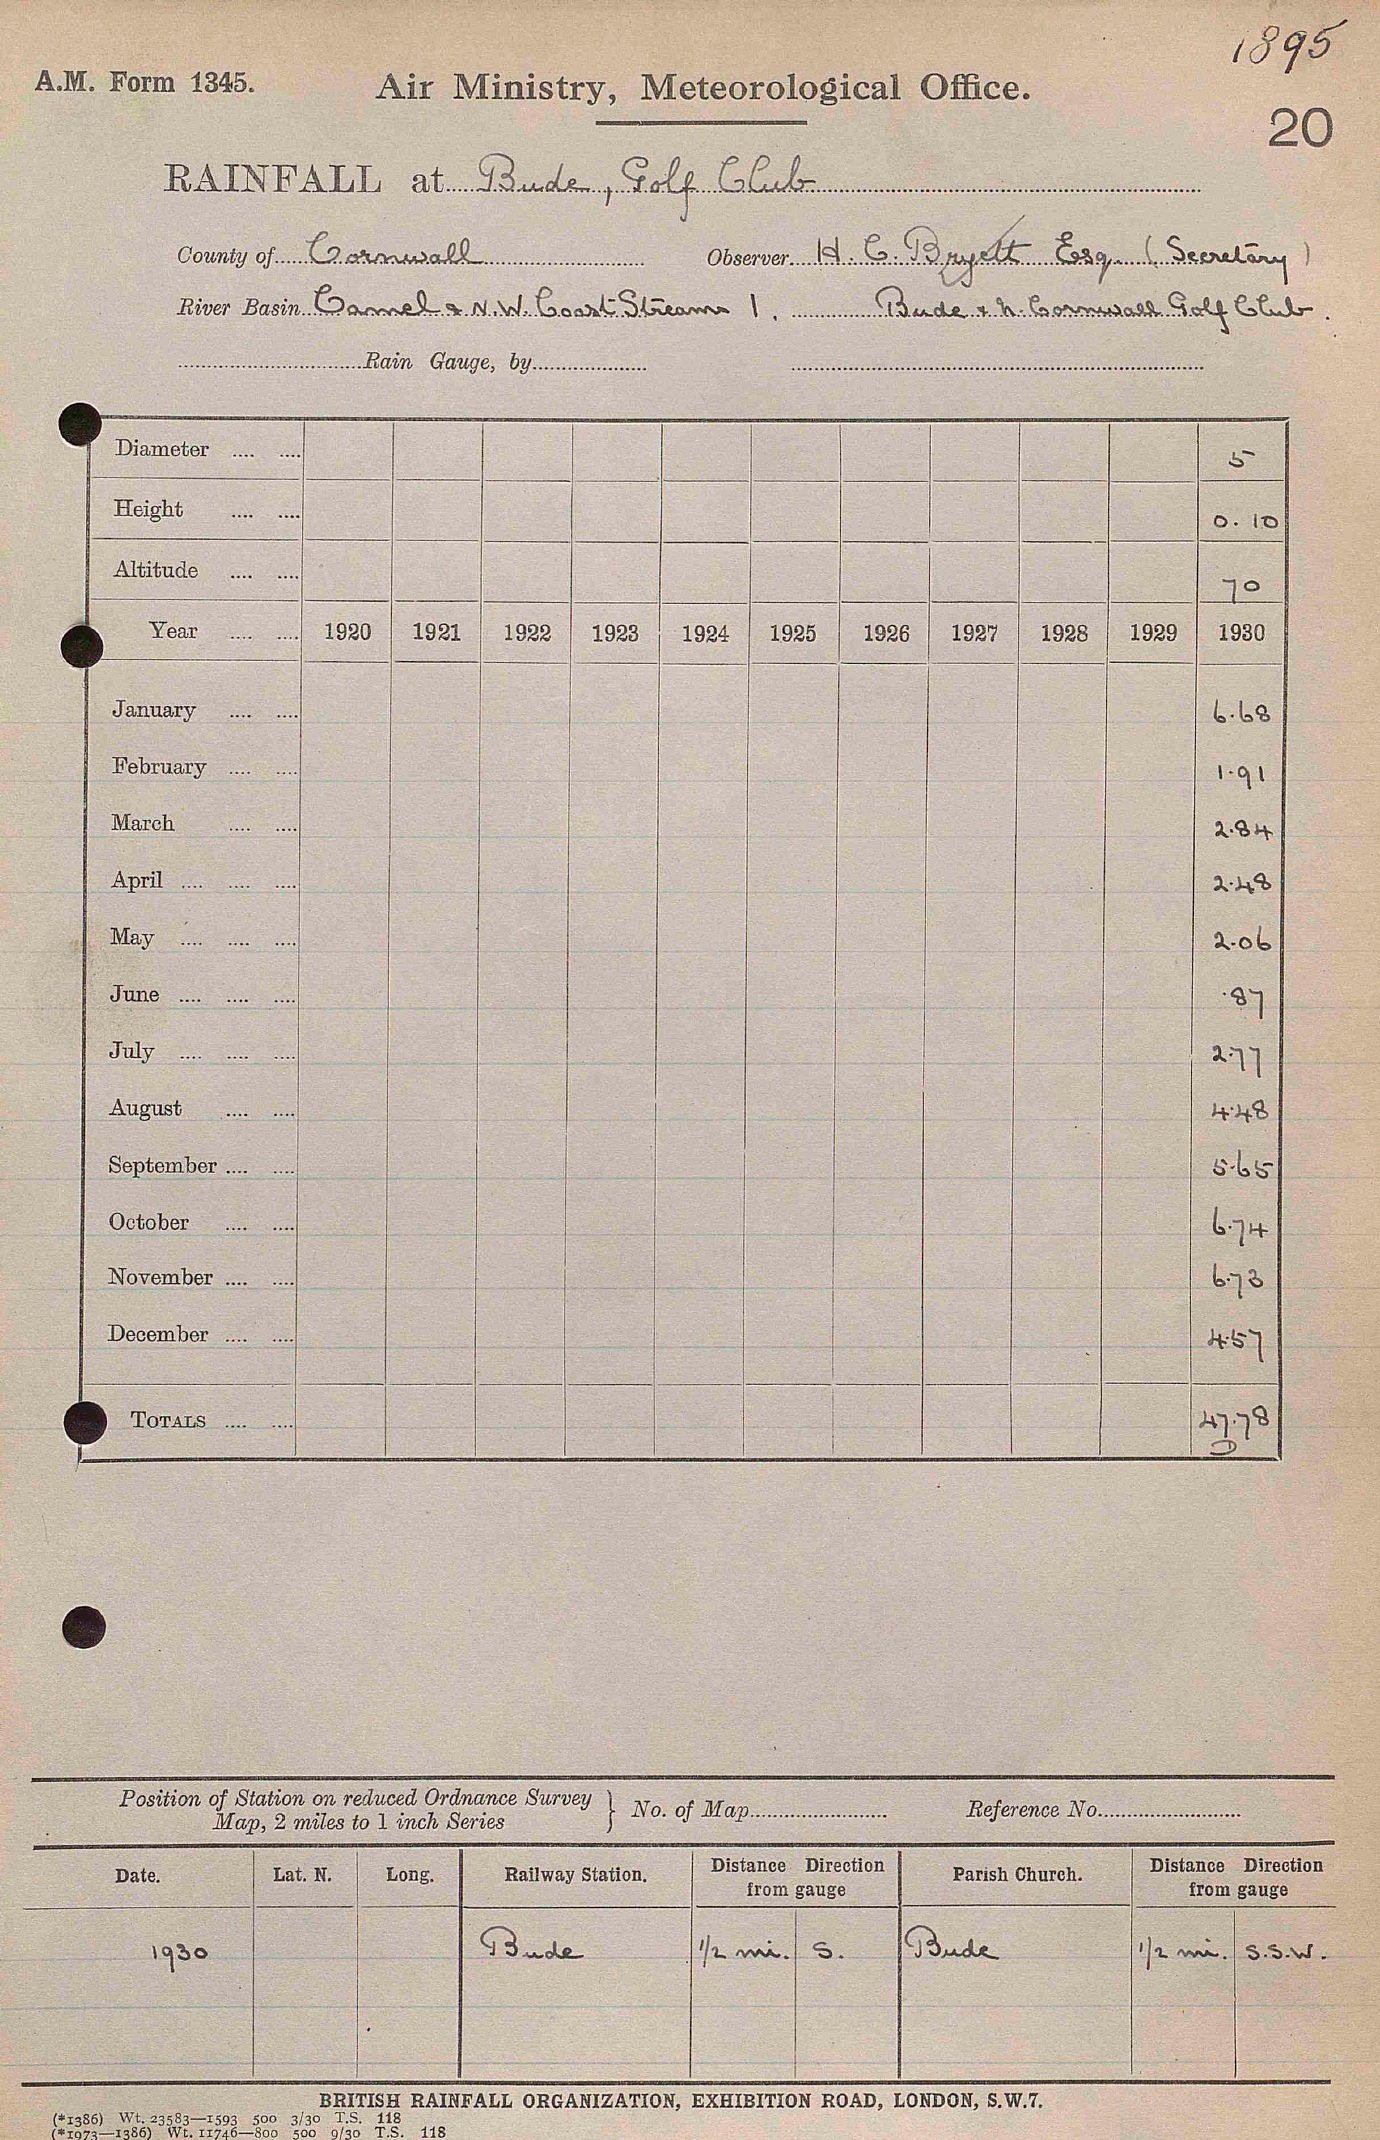 1895
A.M. Form 1345. Air Ministry, Meteorological Office.
20
RAINFALL at Bude, Golf Club
County of Cornwall Observer H. C. Bryett Esq. (Secretary)
River Basin Camel & N.W. Coast Streams 1. Bude & N. Cornwall Golf Club.
Rain Gauge, by
Diameter .... .... 5
Height .... .... 0.10
Altitude .... .... 70
Year .... .... 1920 1921 1922 1923 1924 1925 1926 1927 1928 1929 1930
January .... .... 6.68
February .... .... 1.91
March .... .... 2.84
April .... .... .... 2.48
May .... .... .... 2.06
June .... .... .... .87
July .... .... .... 2.77
August .... .... 4.48
September .... .... 5.65
October .... .... 6.74
November .... .... 6.73
December .... .... 4.57
TOTALS .... .... 47.78
Position of Station on reduced Ordnance Survey
Map, 2 miles to 1 inch Series } No. of Map Reference No.
Date. Lat. N. Long. Railway Station. Distance Direction from gauge Parish Church. Distance Direction from gauge
1930 Bude 1/2 mi. S. Bude 1/2 mi. S.S.W.
BRITISH RAINFALL ORGANIZATION, EXHIBITION ROAD, LONDON, S.W.7.
(*1386) Wt. 23583—1593 500 3/30 T.S. 118
(*1973—1386) Wt. 11746—800 500 9/30 T.S. 118